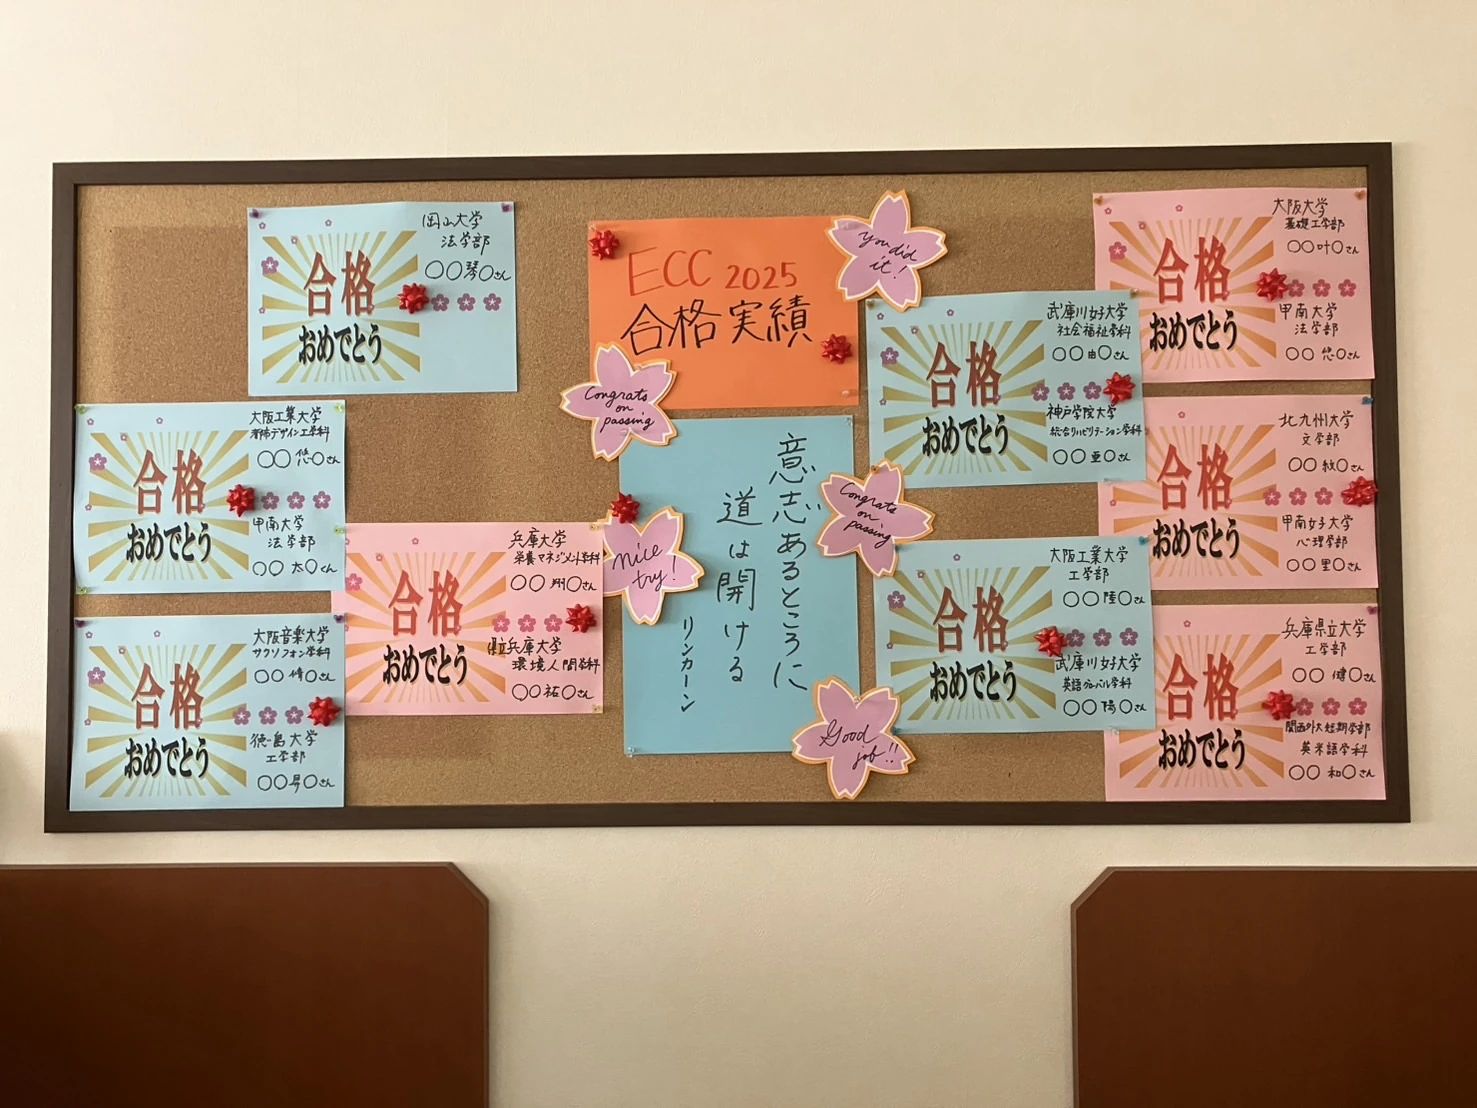 岡山大学
法学部
〇〇琴〇さん
合格
おめでとう
大阪工業大学
都市デザイン工学科
〇〇悠〇さん
合格
おめでとう
甲南大学
法学部
〇〇太〇くん
大阪音楽大学
サクソフォン学科
〇〇脩〇さん
合格
おめでとう
徳島大学
工学部
〇〇昂〇さん
兵庫大学
栄養マネジメント学科
〇〇翔〇さん
合格
おめでとう
県立兵庫大学
環境人間学科
〇〇祐〇さん
ECC 2025
合格実績
You did
it!
Congrats
on
passing
意志あるところに
道は開ける
リンカーン
nice
try!
Congrats
on
passing
Good
job!!
武庫川女子大学
社会福祉学科
〇〇由〇さん
合格
おめでとう
神戸学院大学
総合リハビリテーション学科
〇〇亜〇さん
大阪工業大学
工学部
〇〇陸〇さん
合格
おめでとう
武庫川女子大学
英語グローバル学科
〇〇陽〇さん
大阪大学
基礎工学部
〇〇叶〇さん
合格
おめでとう
甲南大学
法学部
〇〇悠〇さん
北九州大学
文学部
〇〇紋〇さん
合格
おめでとう
甲南女子大学
心理学部
〇〇里〇さん
兵庫県立大学
工学部
〇〇健〇さん
合格
おめでとう
関西外大短期学部
英米語学科
〇〇和〇さん